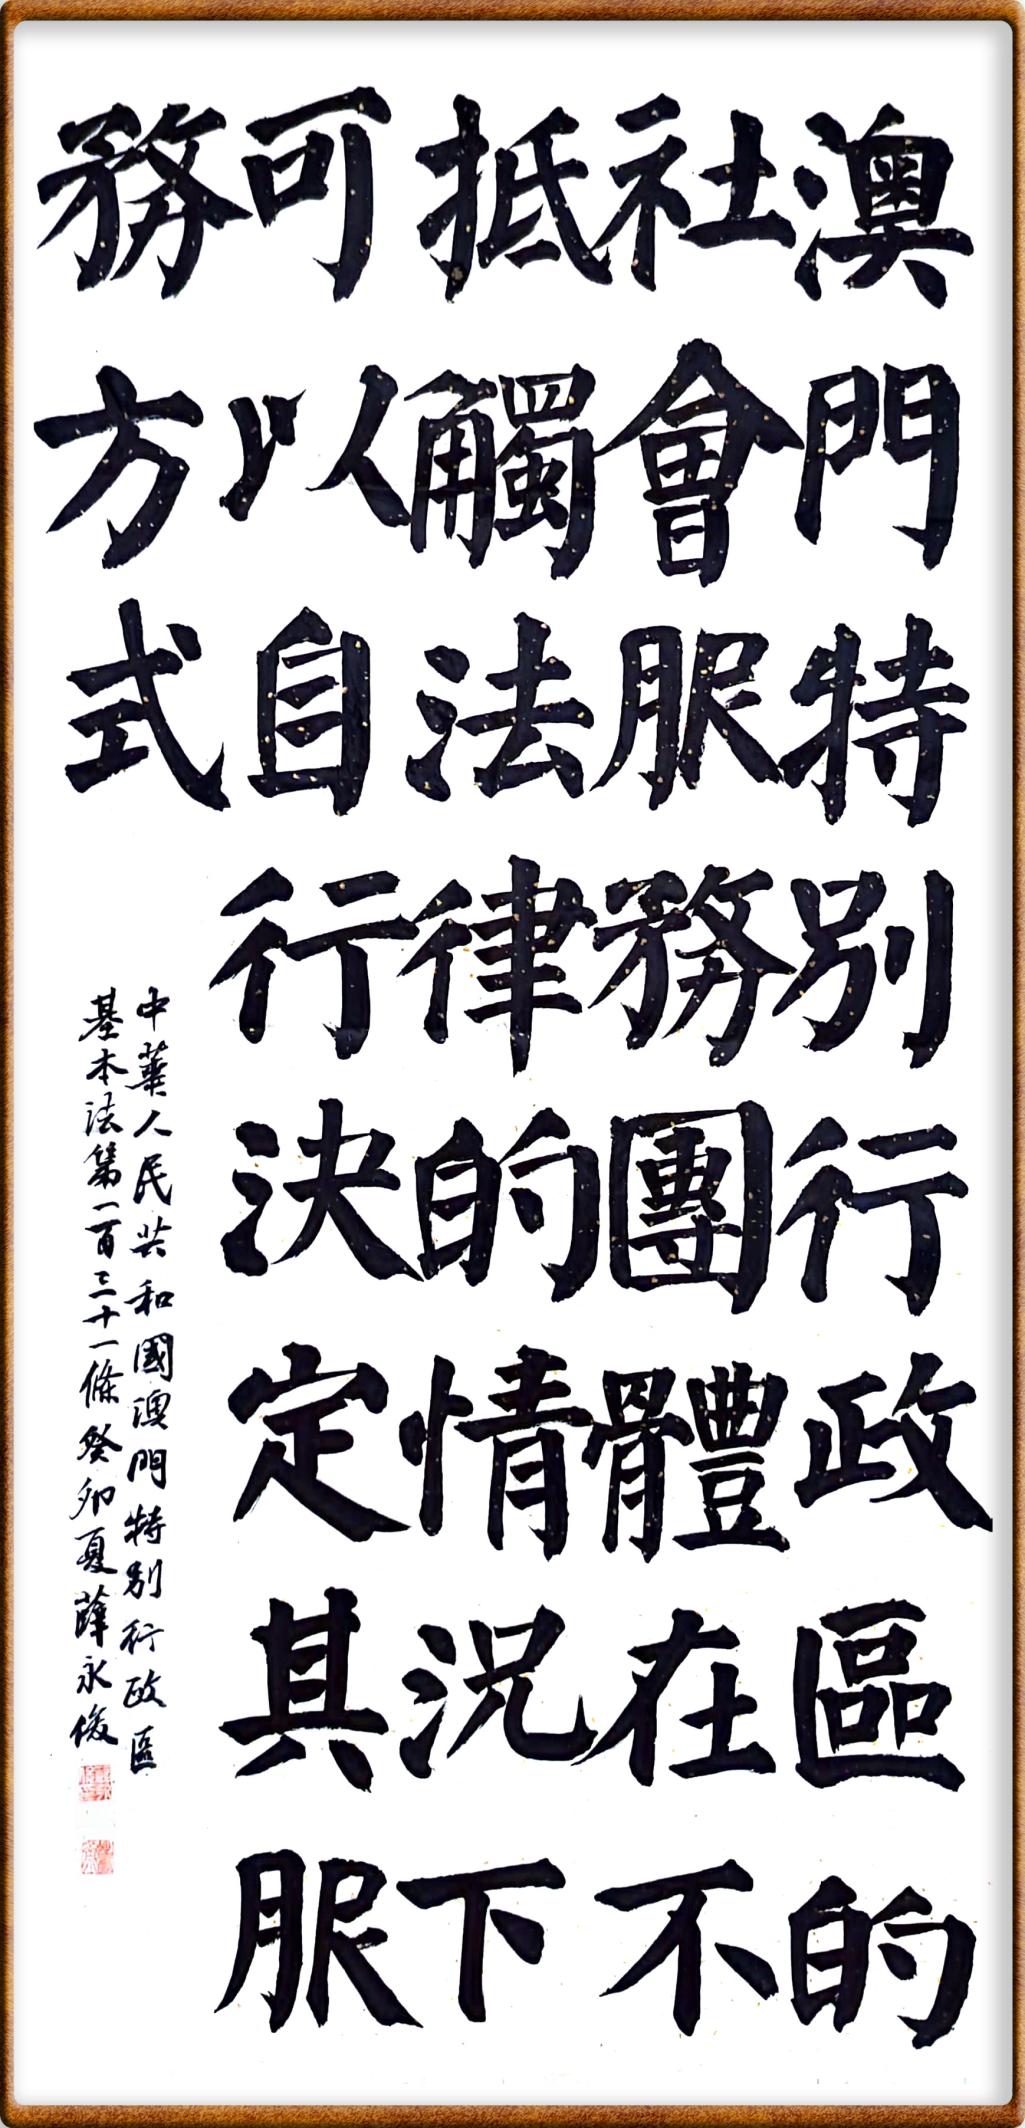 澳門特別行政區的
社會服務團體在不
抵觸法律的情況下
可以自行決定其服
務方式
中華人民共和國澳門特別行政區
基本法第一百三十一條癸卯夏薛永俊